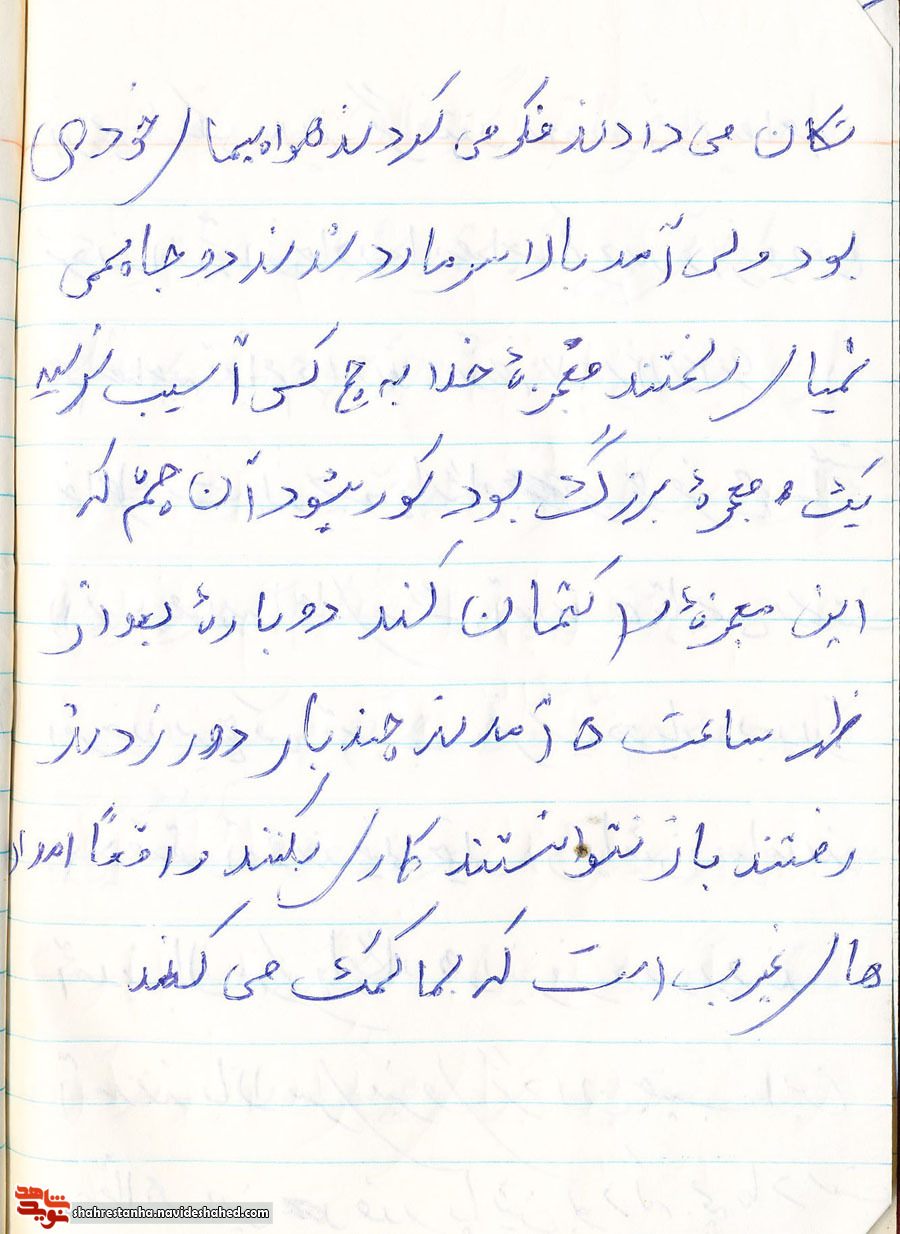 تکان می دادند فکر می کردند هواپیمای خودی
بود ولی آمد بالا سر ما رد شدند دو جا بمبی
خمپاری ریختند معجزهٔ خدا به هیچ کس آسیب نرسید
یک معجزهٔ بزرگ بود کور بشود آن چشم که
این معجزهٔ را کتمان کند دوبارهٔ بعد از
ظهر ساعت ۵ آمدند چند بار دور زدند
رفتند باز نتوانستند کاری بکنند واقعاً امداد
های غیب است که بما کمک می کنند
شاهد
نوید
shahrestanha.navideshahed.com